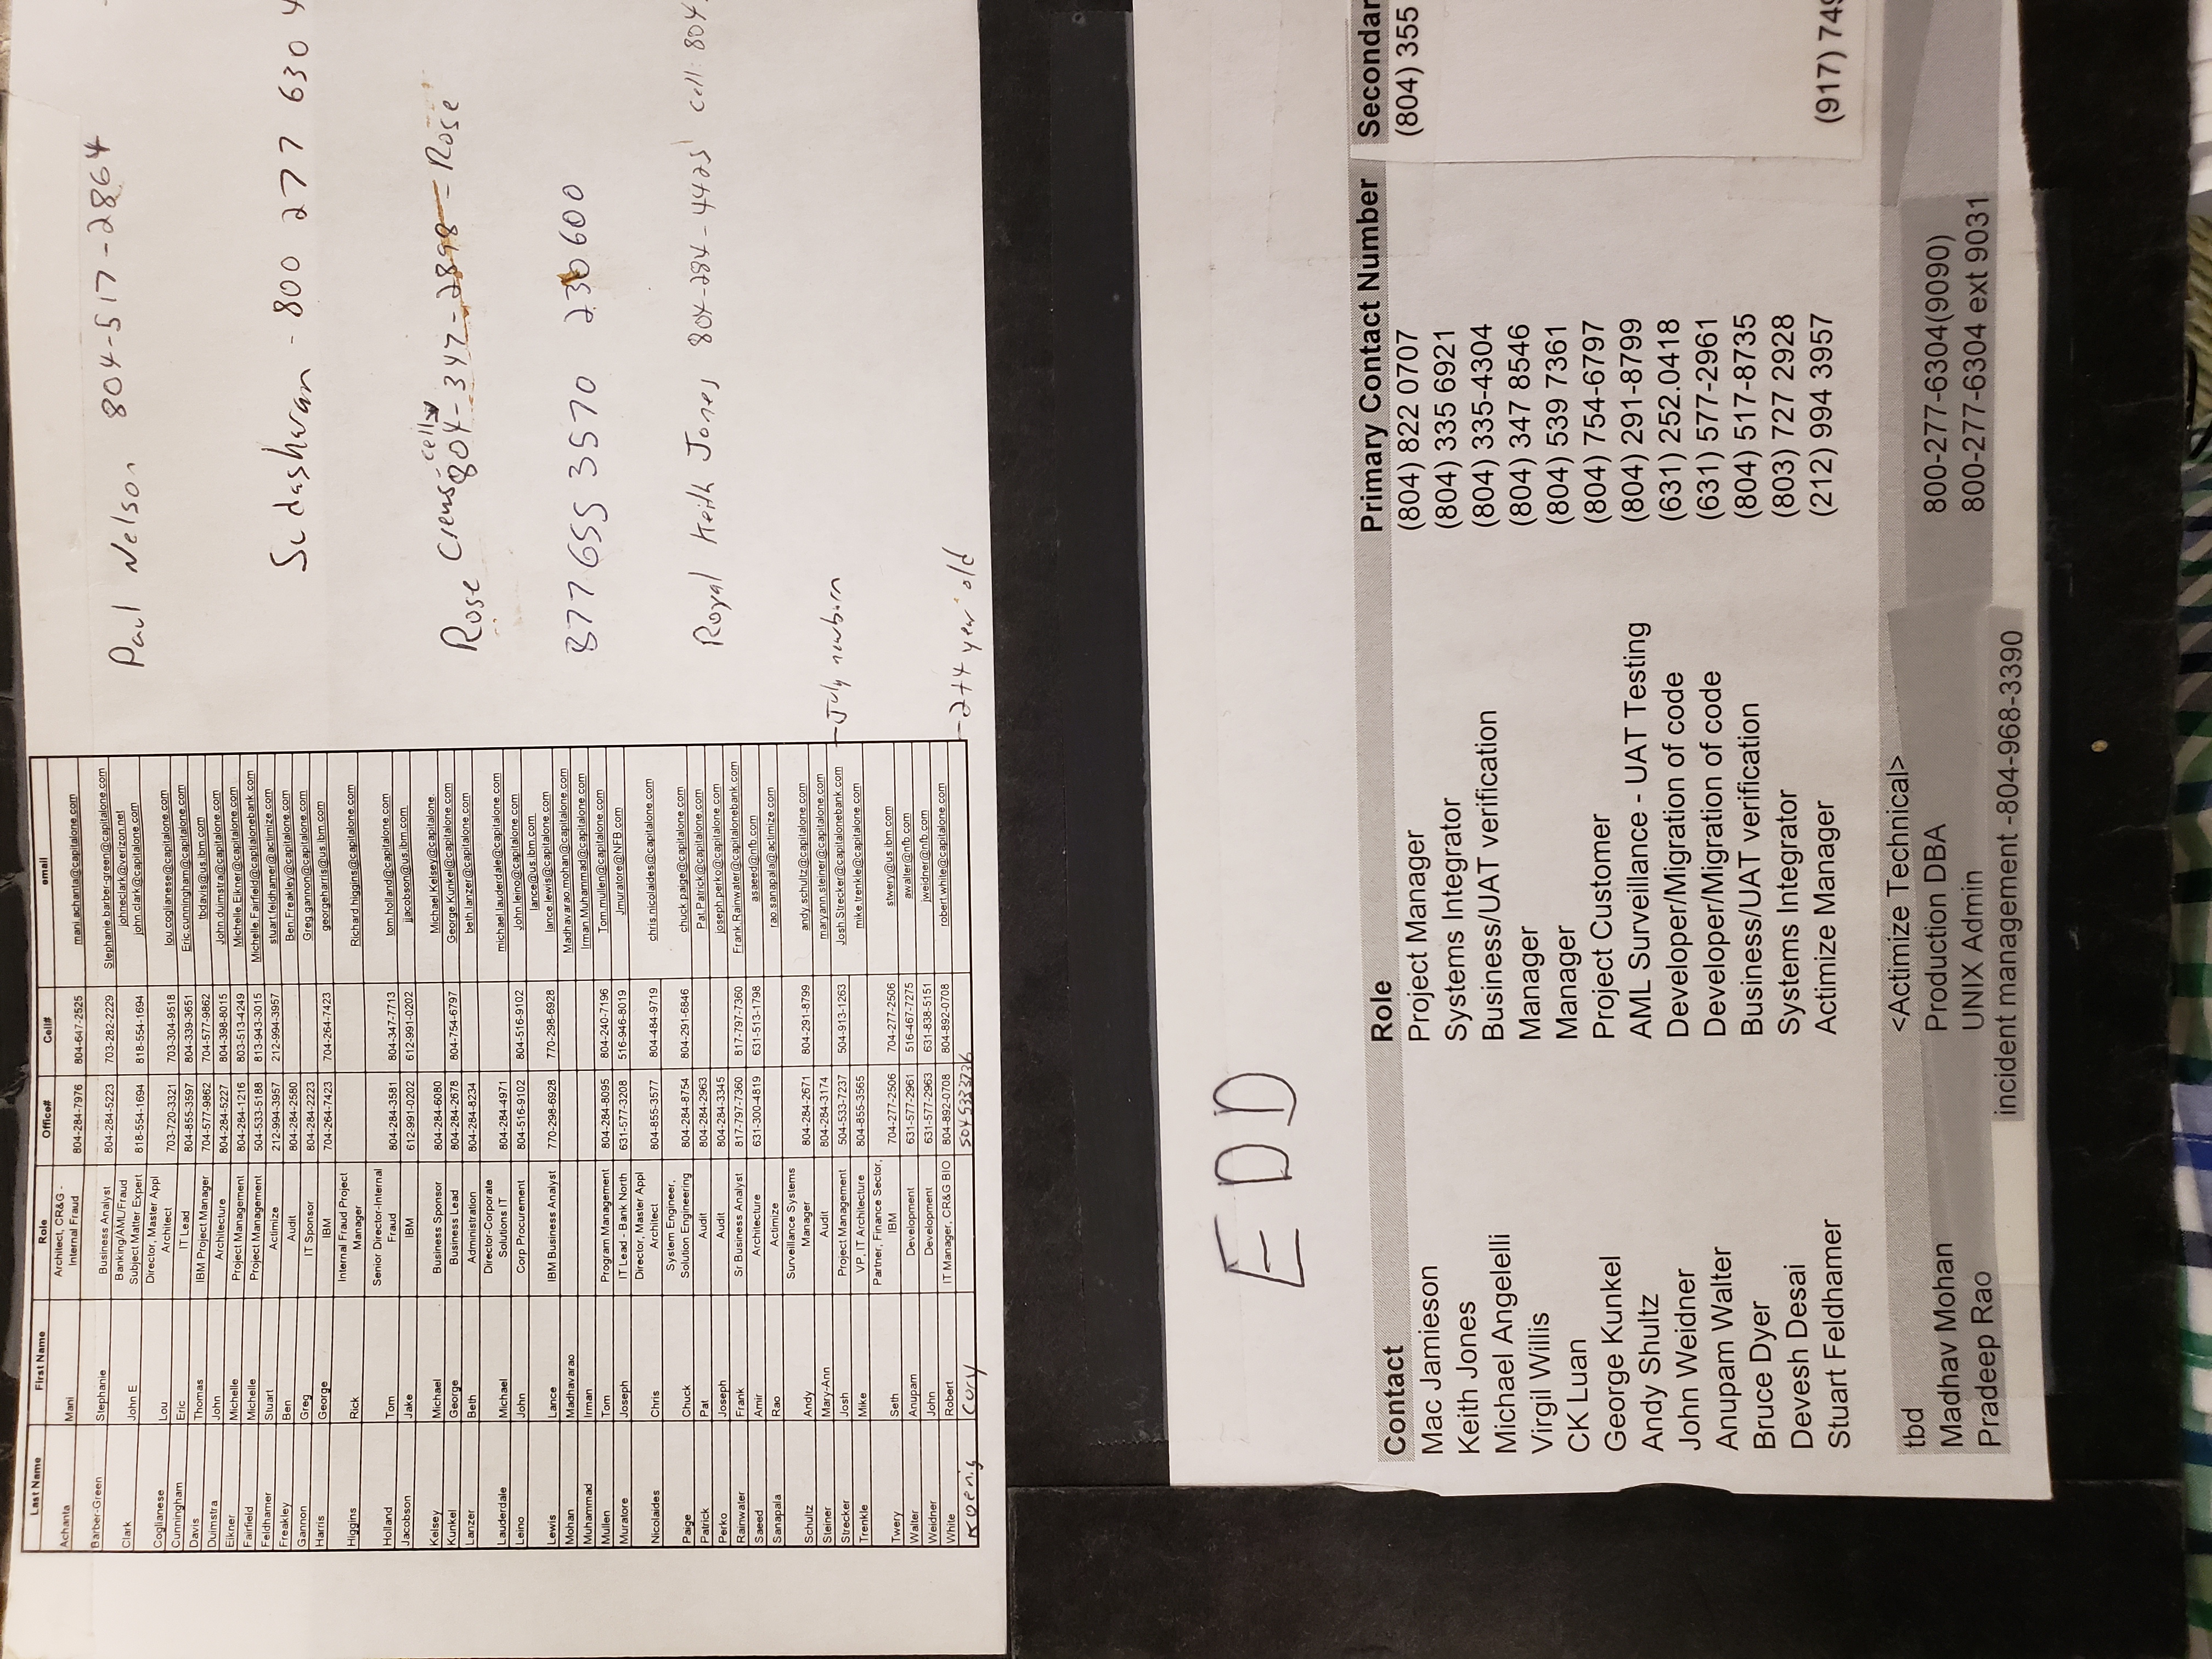 Last Name First Name Role Office# Cell# email
Achanta Mani Architect, CR&G - Internal Fraud 804-284-7976 804-647-2525 mani.achanta@capitalone.com
Barber-Green Stephanie Business Analyst 804-284-5223 703-282-2229 Stephanie.barber-green@capitalone.com
Clark John E Banking/AML/Fraud Subject Matter Expert 818-554-1694 818-554-1694 johneclark@verizon.net john.clark@capitalone.com
Coglianese Lou Director, Master Appl Architect 703-720-3321 703-304-9518 lou.coglianese@capitalone.com
Cunningham Eric IT Lead 804-855-3597 804-339-3651 Eric.cunningham@capitalone.com
Davis Thomas IBM Project Manager 704-577-9862 704-577-9862 tbdavis@us.ibm.com
Duimstra John Architecture 804-284-5227 804-398-8015 John.duimstra@capitalone.com
Eikner Michelle Project Management 804-284-1216 803-513-4249 Michelle.Eikner@capitalone.com
Fairfield Michelle Project Management 504-533-5188 813-943-3015 Michelle.Fairfield@capitalonebank.com
Feldhamer Stuart Actimize 212-994-3957 212-994-3957 stuart.feldhamer@actimize.com
Freakley Ben Audit 804-284-2580 Ben.Freakley@capitalone.com
Gannon Greg IT Sponsor 804-284-2223 Greg.gannon@capitalone.com
Harris George IBM 704-264-7423 704-264-7423 georgeharris@us.ibm.com
Higgins Rick Internal Fraud Project Manager Richard.higgins@capitalone.com
Holland Tom Senior Director-Internal Fraud 804-284-3581 804-347-7713 tom.holland@capitalone.com
Jacobson Jake IBM 612-991-0202 612-991-0202 jjacobson@us.ibm.com
Kelsey Michael Business Sponsor 804-284-6080 Michael.Kelsey@capitalone.
Kunkel George Business Lead 804-284-2678 804-754-6797 George.Kunkel@capitalone.com
Lanzer Beth Administration 804-284-8234 beth.lanzer@capitalone.com
Lauderdale Michael Director-Corporate Solutions IT 804-284-4971 michael.lauderdale@capitalone.com
Leino John Corp Procurement 804-516-9102 804-516-9102 John.leino@capitalone.com
Lewis Lance IBM Business Analyst 770-298-6928 770-298-6928 lance@us.ibm.com lance.lewis@capitalone.com
Mohan Madhavarao Madhavarao.mohan@capitalone.com
Muhammad Irman Irman.Muhammad@capitalone.com
Mullen Tom Program Management 804-284-8095 804-240-7196 Tom.mullen@capitalone.com
Muratore Joseph IT Lead - Bank North 631-577-3208 516-946-8019 Jmuratore@NFB.com
Nicolaides Chris Director, Master Appl Architect 804-855-3577 804-484-9719 chris.nicolaides@capitalone.com
Paige Chuck System Engineer, Solution Engineering 804-284-8754 804-291-6846 chuck.paige@capitalone.com
Patrick Pat Audit 804-284-2963 Pat.Patrick@capitalone.com
Perko Joseph Audit 804-284-3345 joseph.perko@capitalone.com
Rainwater Frank Sr Business Analyst 817-797-7360 817-797-7360 Frank.Rainwater@capitalonebank.com
Saeed Amir Architecture 631-300-4819 631-513-1798 asaeed@nfb.com
Sanapala Rao Actimize rao.sanapala@actimize.com
Schultz Andy Surveillance Systems Manager 804-284-2671 804-291-8799 andy.schultz@capitalone.com
Steiner Mary-Ann Audit 804-284-3174 maryann.steiner@capitalone.com
Strecker Josh Project Management 504-533-7237 504-913-1263 Josh.Strecker@capitalonebank.com - July newborn
Trenkle Mike VP, IT Architecture 804-855-3565 mike.trenkle@capitalone.com
Twery Seth Partner, Finance Sector, IBM 704-277-2506 704-277-2506 stwery@us.ibm.com
Walter Anupam Development 631-577-2961 516-467-7275 awalter@nfb.com
Weidner John Development 631-577-2963 631-838-5151 jweidner@nfb.com
White Robert IT Manager, CR&G BIO 804-892-0708 804-892-0708 robert.white@capitalone.com - 2+4 year old
Koenig Cory 5045333736
Paul Nelson 804-517-2864
Sudasharan - 800 277 630 4
Rose Crens - cell
804-347-2898 - Rose
877 655 3570 230600
Royal Keith Jones 804-284-4425 cell: 804.
EDD
Contact Role Primary Contact Number Secondar
Mac Jamieson Project Manager (804) 822 0707 (804) 355
Keith Jones Systems Integrator (804) 335 6921
Michael Angelelli Business/UAT verification (804) 335-4304
Virgil Willis Manager (804) 347 8546
CK Luan Manager (804) 539 7361
George Kunkel Project Customer (804) 754-6797
Andy Shultz AML Surveillance - UAT Testing (804) 291-8799
John Weidner Developer/Migration of code (631) 252.0418
Anupam Walter Developer/Migration of code (631) 577-2961
Bruce Dyer Business/UAT verification (804) 517-8735
Devesh Desai Systems Integrator (803) 727 2928
Stuart Feldhamer Actimize Manager (212) 994 3957 (917) 749
tbd <Actimize Technical>
Madhav Mohan Production DBA 800-277-6304(9090)
Pradeep Rao UNIX Admin 800-277-6304 ext 9031
incident management -804-968-3390